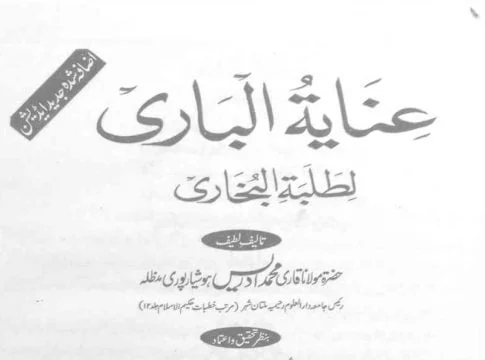 اضافہ شدہ جدید ایڈیشن
عِنَايَةُ البَارِى
لِطَلَبَةِ البُخَارِى
تالیفِ لطیف
حضرۃ مولانا قاری محمد ادریس ہوشیارپوری مدظلہ
رئیس جامعہ دارالعلوم رحیمیہ ملتان شہر (مرتب خطبات حکیم الاسلام جلد ۱۲)
بنظرِ تحقیق و اعتماد